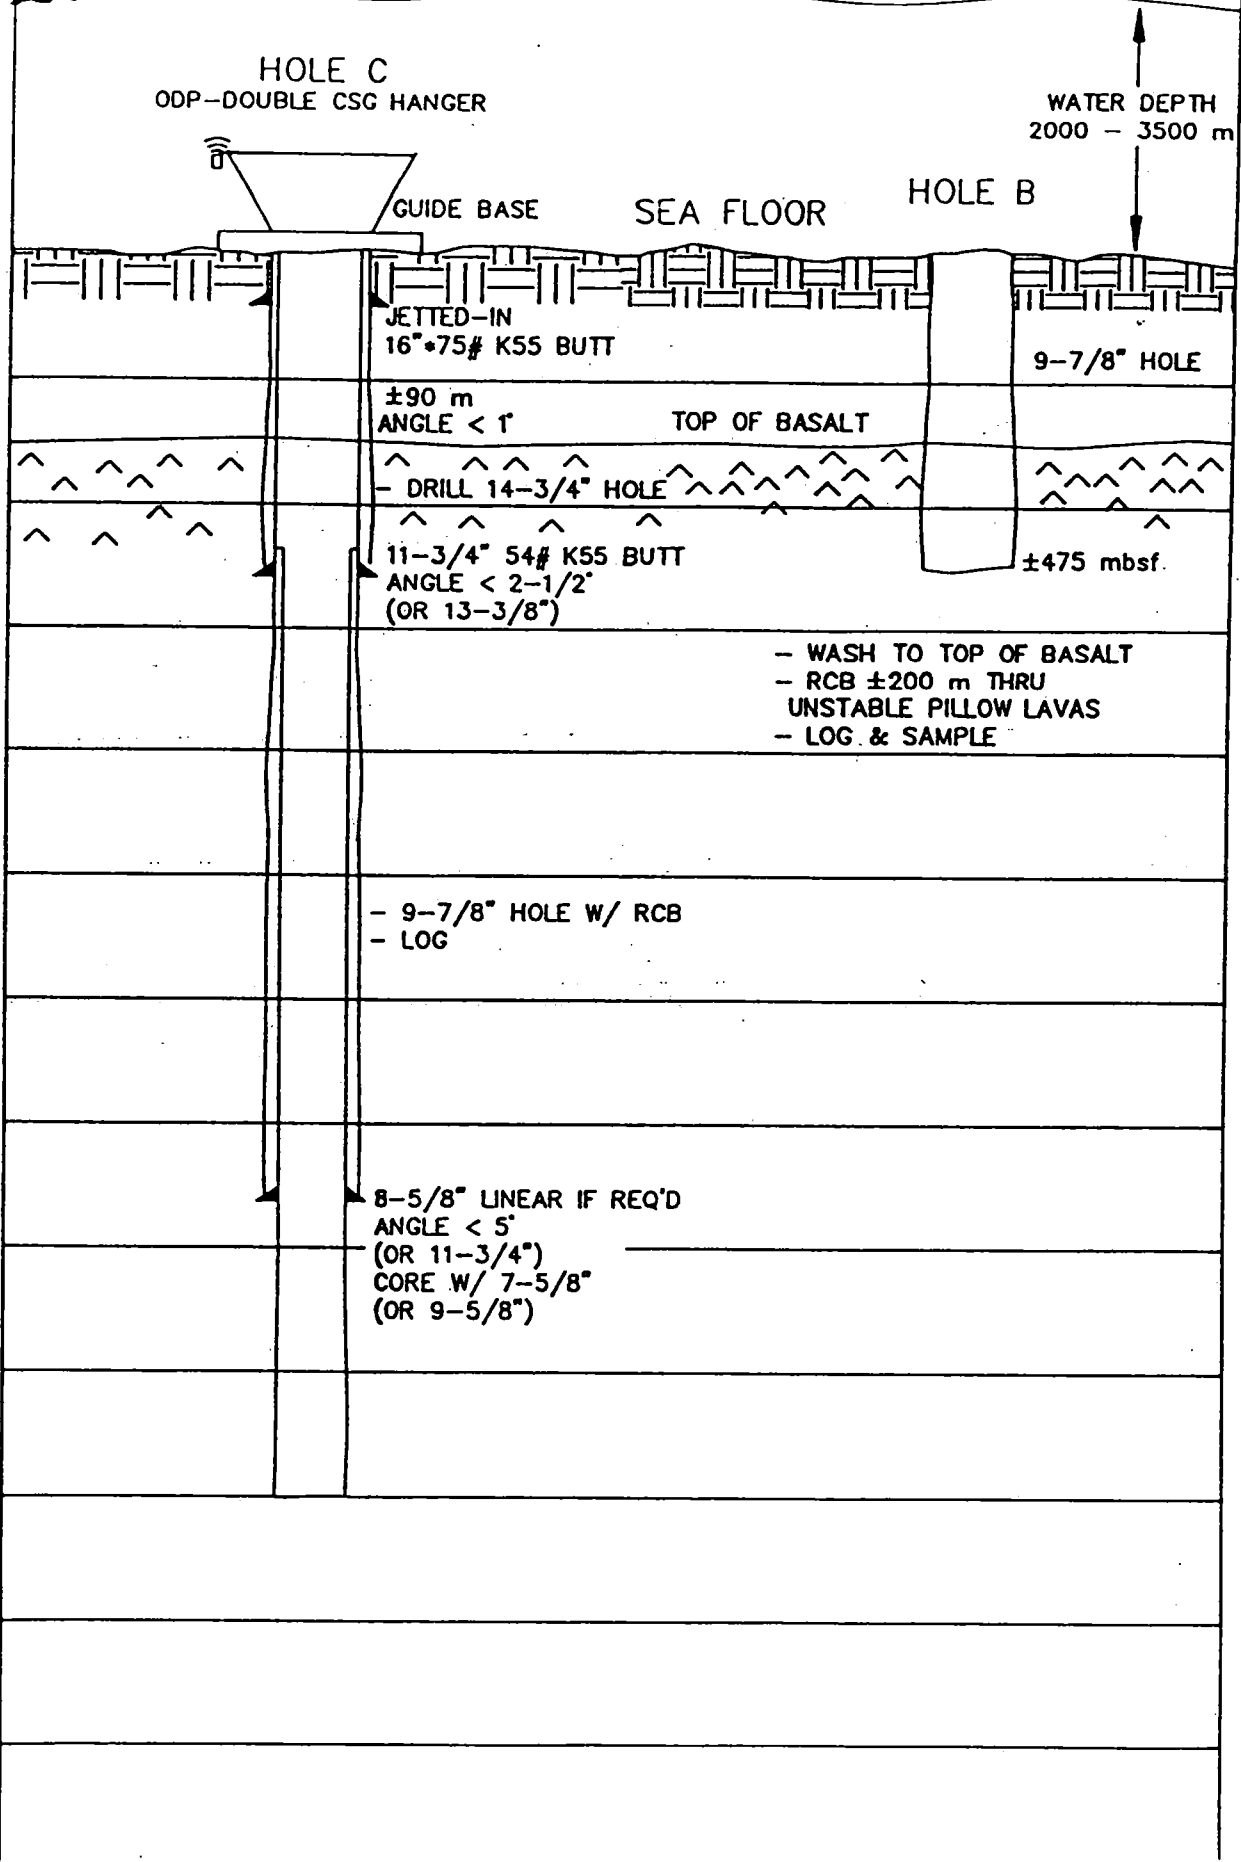 HOLE C
ODP-DOUBLE CSG HANGER
WATER DEPTH
2000 - 3500 m
HOLE B
GUIDE BASE
SEA FLOOR
JETTED-IN
16"*75# K55 BUTT
9-7/8" HOLE
±90 m
ANGLE < 1°
TOP OF BASALT
- DRILL 14-3/4" HOLE
11-3/4" 54# K55 BUTT
ANGLE < 2-1/2°
(OR 13-3/8")
±475 mbsf.
- WASH TO TOP OF BASALT
- RCB ±200 m THRU
UNSTABLE PILLOW LAVAS
- LOG & SAMPLE
- 9-7/8" HOLE W/ RCB
- LOG
8-5/8" LINEAR IF REQ'D
ANGLE < 5°
(OR 11-3/4")
CORE W/ 7-5/8"
(OR 9-5/8")